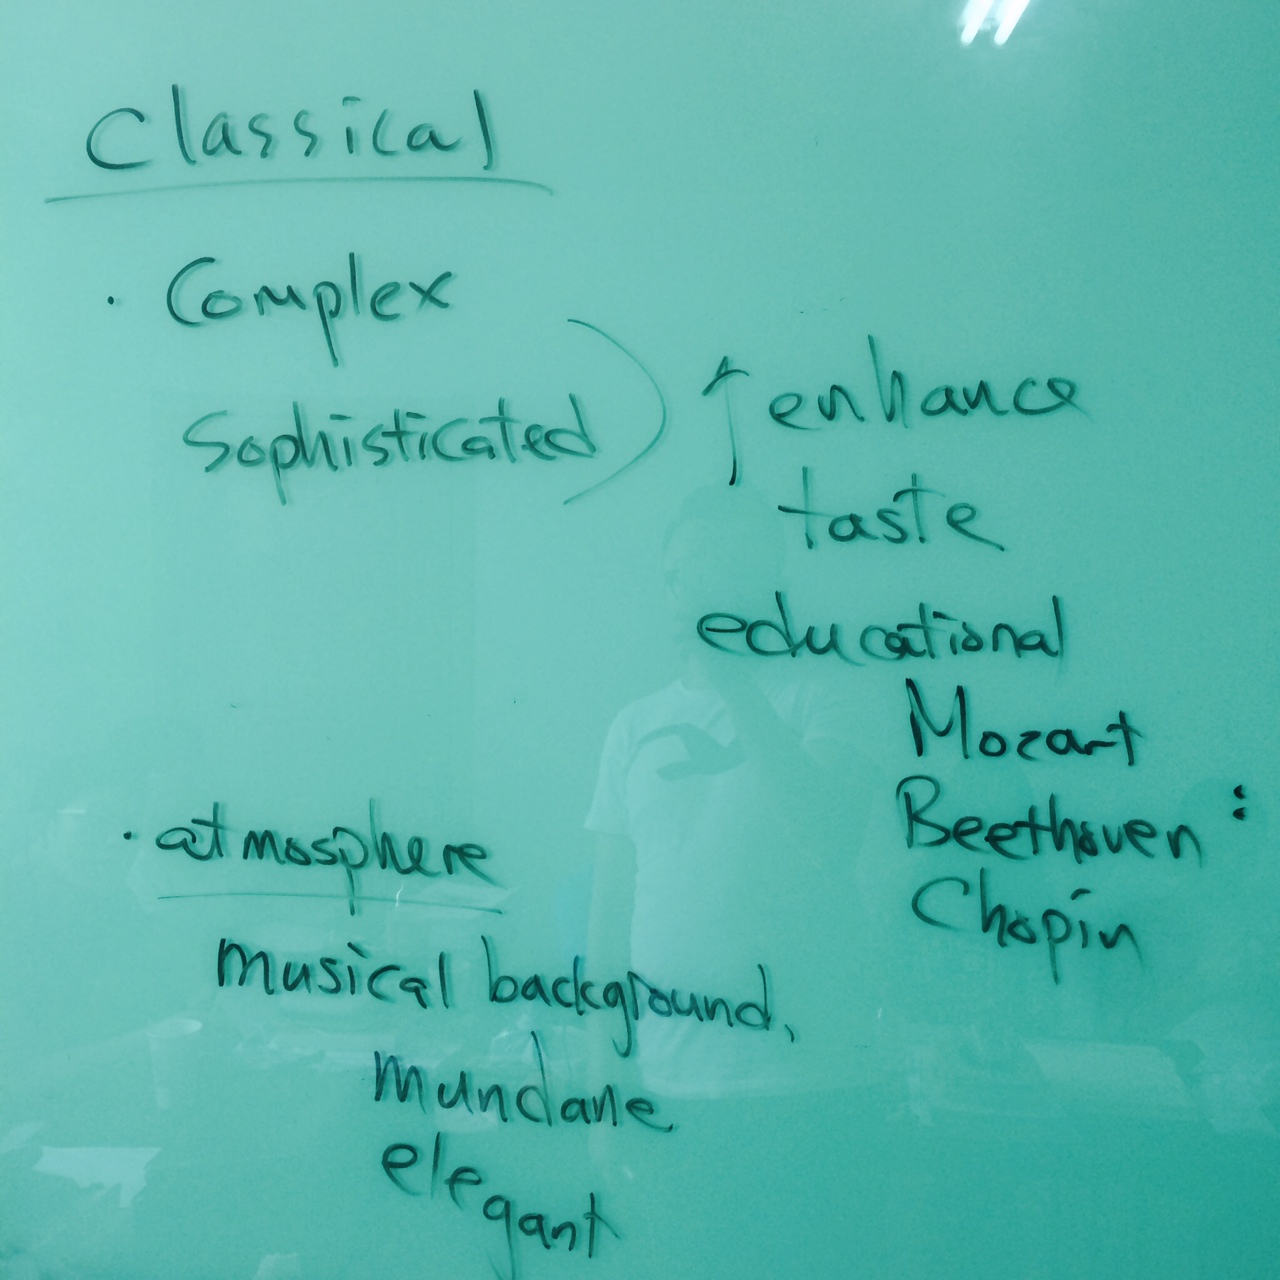 Classical
· Complex
Sophisticated
↑ enhance
taste
educational
Mozart
Beethoven :
Chopin
· atmosphere
musical background,
mundane
elegant